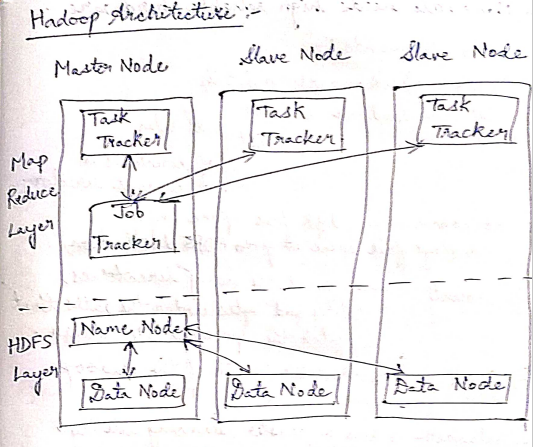 Hadoop Architecture :-
Master Node
Slave Node
Slave Node
Task
Tracker
Task
Tracker
Task
Tracker
Map
Reduce
Layer
Job
Tracker
HDFS
Layer
Name Node
Data Node
Data Node
Data Node